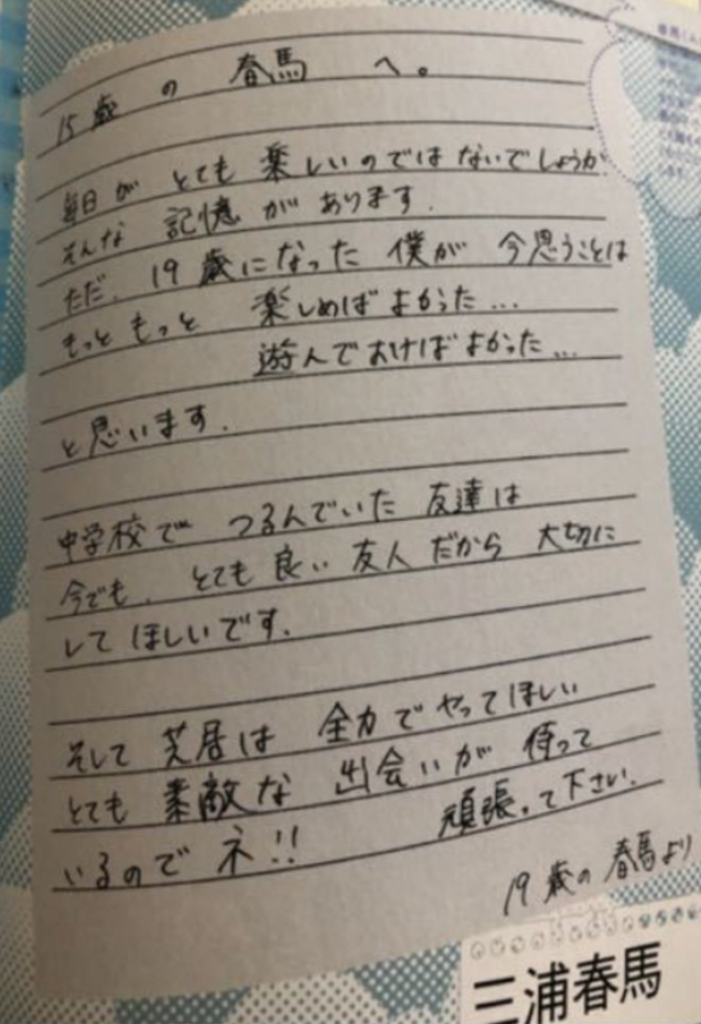 15歳の 春馬 へ。
毎日が とても 楽しいのではないでしょうか
そんな 記憶が あります.
ただ、19歳になった 僕が 今思うことは
もっと もっと 楽しめば よかった...
遊んでおけば よかった...
と思います.
中学校で つるんでいた 友達は
今でも、とても 良い 友人だから 大切に
して ほしいです.
そして 芝居は 全力で やって ほしい
とても 素敵な 出会いが 待って
いるので ネ!! 頑張って下さい.
19歳の 春馬より
三浦春馬